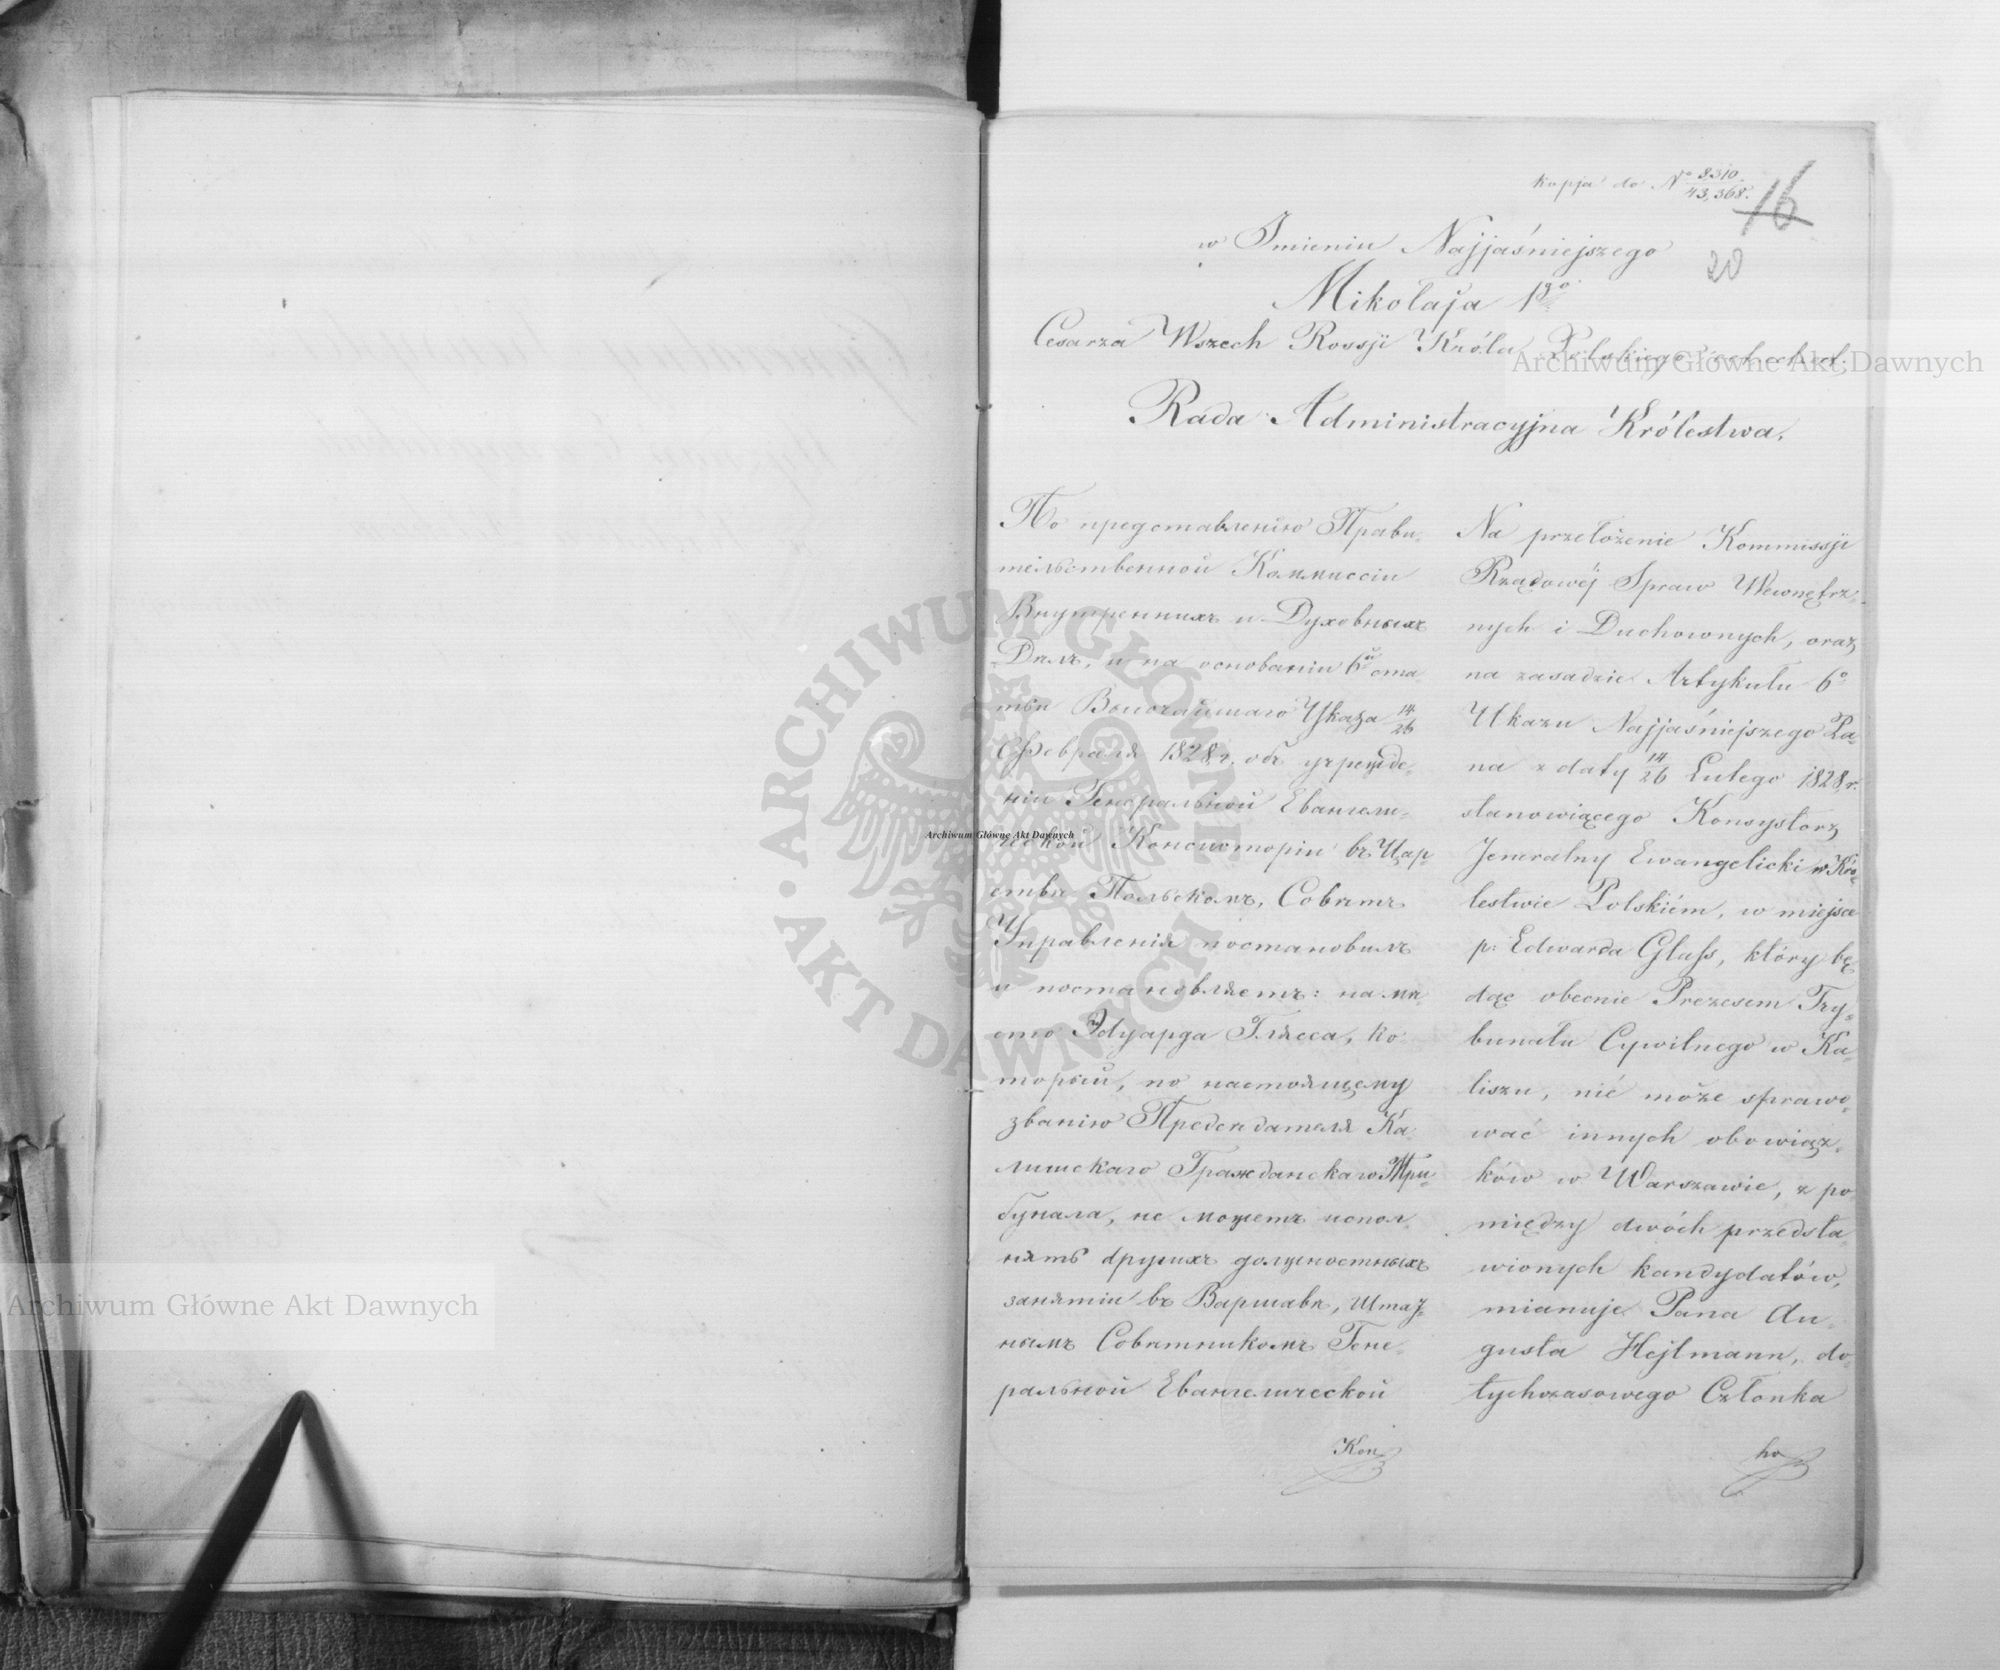 kopja do Nº 8310
43,368.
16
20
w Imieniu Najjaśniejszego
Mikołaja 1go
Cesarza Wszech Rossji Króla Polskiego ect. ect. ect.
Rada Administracyjna Królestwa.
По представленію Прави-
тельственной Коммиссіи
Внутреннихъ и Духовныхъ
Дѣлъ, и на основаніи 6й ста-
тьи Высочайшаго Указа 14/26
Февраля 1828 г. объ учрежде-
ніи Генеральной Евангели-
ческой Консисторіи въ Цар-
ствѣ Польскомъ, Совѣтъ
Управленія постановилъ
и постановляетъ: на мѣ-
сто Эдуарда Глясса, ко-
торый, по настоящему
званію Предсѣдателя Ка-
лишскаго Гражданскаго Три-
бунала, не можетъ испол-
нять другихъ должностныхъ
занятій въ Варшавѣ, Штат-
нымъ Совѣтникомъ Гене-
ральной Евангелической
Кон
Na przełożenie Kommissji
Rządowéj Spraw Wewnętrz-
nych i Duchownych, oraz
na zasadzie Artykułu 6º
Ukazu Najjaśniejszego Pa-
na z daty 14/26 Lutego 1828 r.
stanowiącego Konsystorz
Jeneralny Ewangelicki w Kró-
lestwie Polskiém, w miejsce
p: Edwarda Glass, który bę-
dąc obecnie Prezesem Try-
bunału Cywilnego w Ka-
liszu, nié może sprawo-
wać innych obowiąz-
ków w Warszawie, z po-
między dwóch przedsta-
wionych kandydatów,
mianuje Pana Au-
gusta Hejlmann, do-
tychczasowego Członka
ho
Archiwum Główne Akt Dawnych
Archiwum Główne Akt Dawnych
Archiwum Główne Akt Dawnych
ARCHIWUM GŁÓWNE AKT DAWNYCH